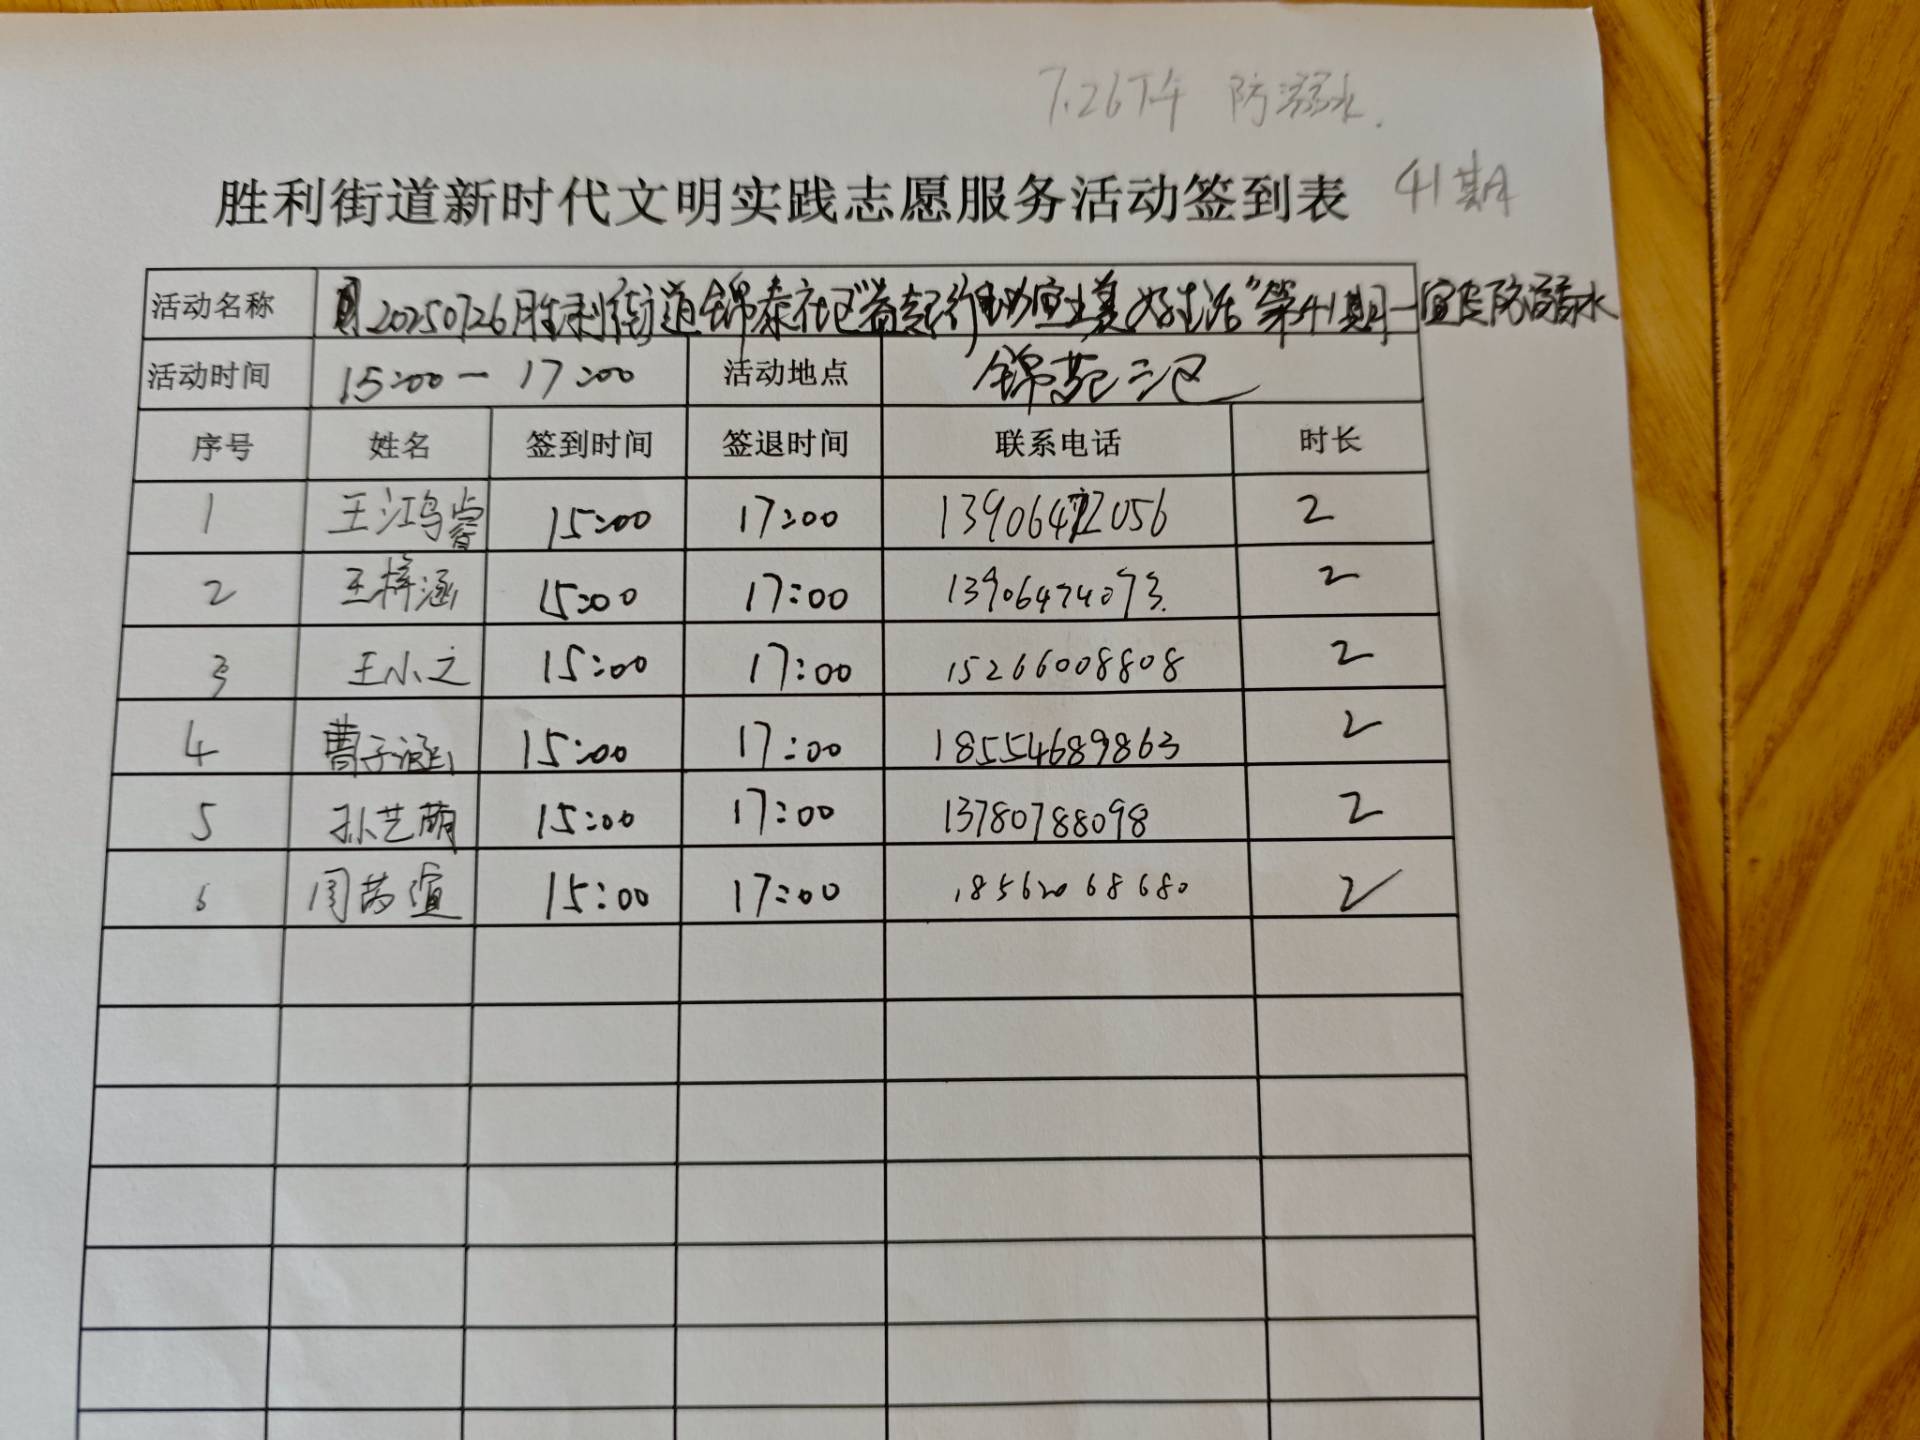 7.26下午 防溺水.
胜利街道新时代文明实践志愿服务活动签到表 41期
活动名称 20250726胜利街道锦泰社区"益起行动 宜业美好生活"第41期一宣传防溺水
活动时间 15:00一17:00 活动地点 锦苑三区
序号 姓名 签到时间 签退时间 联系电话 时长
1 王鸿睿 15:00 17:00 2
2 王梓涵 15:00 17:00 13906474073. 2
3 王小之 15:00 17:00 15266008808 2
4 曹子涵 15:00 17:00 18554689863 2
5 孙艺萌 15:00 17:00 13780788098 2
6 周 15:00 17:00 18562068680 2